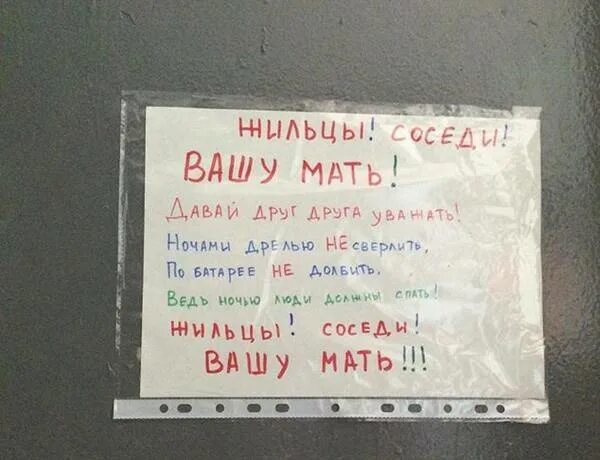 ЖИЛЬЦЫ! СОСЕДИ!
ВАШУ МАТЬ!
ДАВАЙ ДРУГ ДРУГА УВАЖАТЬ!
НОЧАМИ ДРЕЛЬЮ НЕ СВЕРЛИТЬ,
ПО БАТАРЕЕ НЕ ДОЛБИТЬ.
ВЕДЬ НОЧЬЮ ЛЮДИ ДОЛЖНЫ СПАТЬ!
ЖИЛЬЦЫ! СОСЕДИ!
ВАШУ МАТЬ!!!